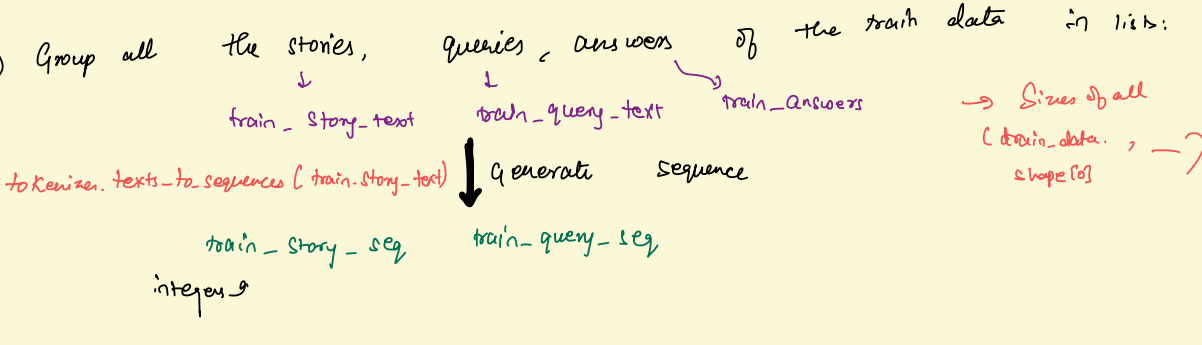 ) Group all the stories, queries, answers of the train data in lists:
train_story_text train_query_text train_answers → Sizes of all
(train_data. , —)
shape[0]
tokenizer.texts_to_sequences(train_story_text) Generate sequence
train_story_seq train_query_seq
integers